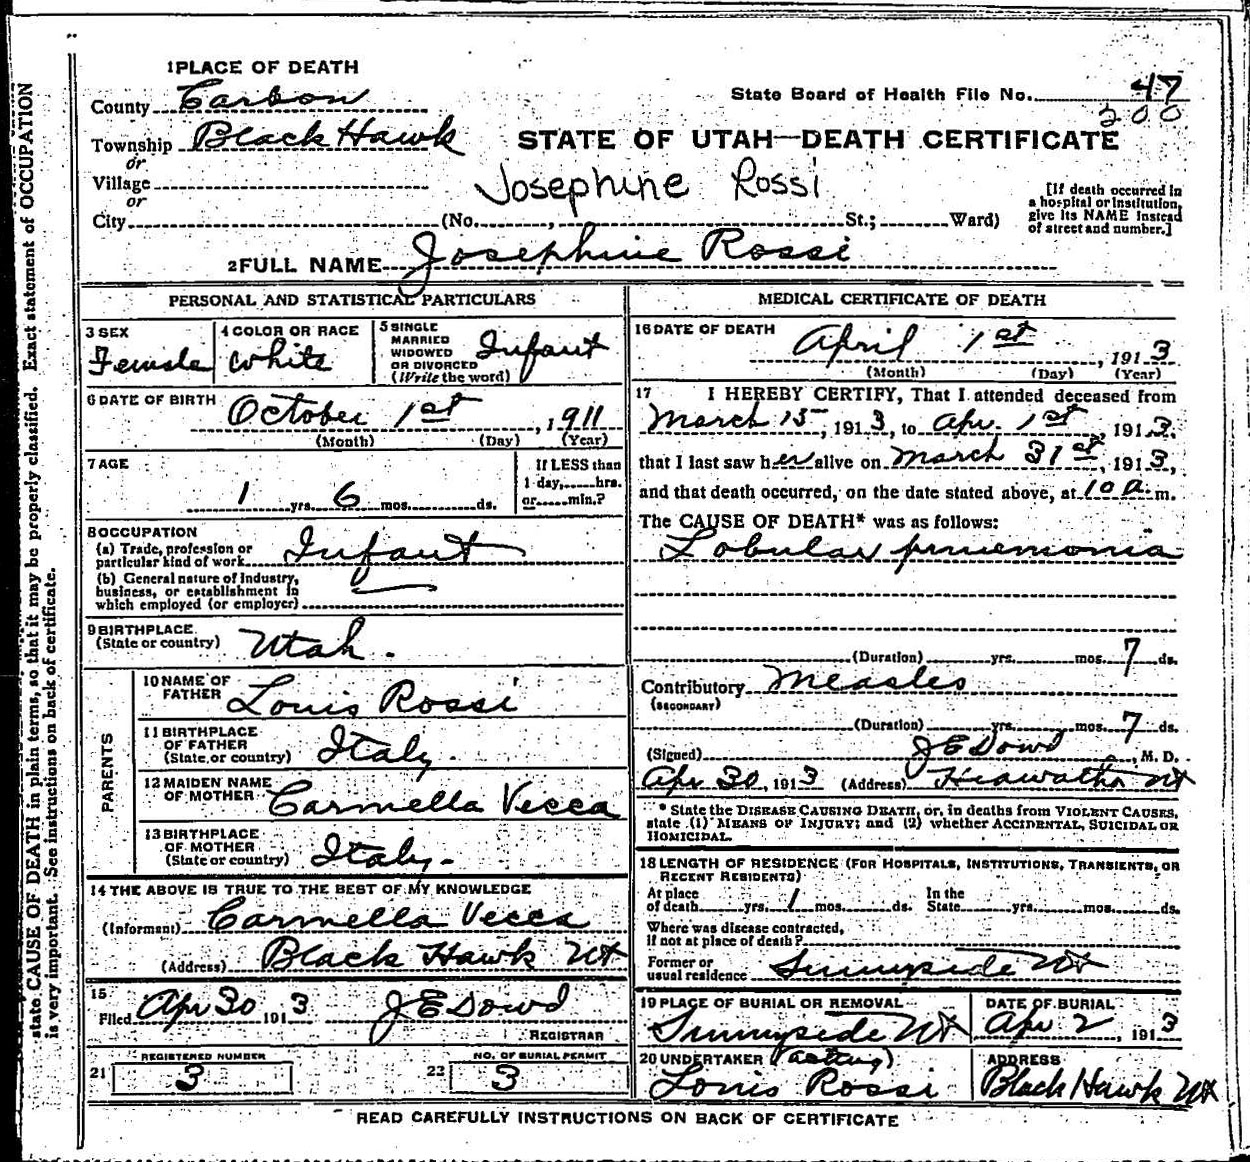 1 PLACE OF DEATH
County Carbon
State Board of Health File No. 47
200
Township Black Hawk
STATE OF UTAH—DEATH CERTIFICATE
or
Village
Josephine Rossi
or
City (No. , St.; Ward)
[If death occurred in
a hospital or institution,
give its NAME instead
of street and number.]
2 FULL NAME Josephine Rossi
PERSONAL AND STATISTICAL PARTICULARS
3 SEX
Female
4 COLOR OR RACE
White
5 SINGLE
MARRIED
WIDOWED
OR DIVORCED
(Write the word)
Infant
6 DATE OF BIRTH
October 1st, 1911
(Month) (Day) (Year)
7 AGE
1 yrs. 6 mos. ds.
If LESS than
1 day, hrs.
or min.?
8 OCCUPATION
(a) Trade, profession or
particular kind of work Infant
(b) General nature of Industry,
business, or establishment in
which employed (or employer)
9 BIRTHPLACE
(State or country) Utah.
PARENTS
10 NAME OF
FATHER Louis Rossi
11 BIRTHPLACE
OF FATHER
(State or country) Italy.
12 MAIDEN NAME
OF MOTHER Carmella Vecca
13 BIRTHPLACE
OF MOTHER
(State or country) Italy.
14 THE ABOVE IS TRUE TO THE BEST OF MY KNOWLEDGE
(Informant) Carmella Vecca
(Address) Black Hawk Ut
15
Filed Apr 30 1913 J E Dowd
REGISTRAR
21 REGISTERED NUMBER
3
22 NO. OF BURIAL PERMIT
3
MEDICAL CERTIFICATE OF DEATH
16 DATE OF DEATH
April 1st, 1913
(Month) (Day) (Year)
17 I HEREBY CERTIFY, That I attended deceased from
March 15, 1913, to Apr. 1st 1913.
that I last saw her alive on March 31st, 1913,
and that death occurred, on the date stated above, at 10 a.m.
The CAUSE OF DEATH* was as follows:
Lobular pnuemonia
(Duration) yrs. mos. 7 ds.
Contributory Measles
(SECONDARY)
(Duration) yrs. mos. 7 ds.
(Signed) J E Dowd, M. D.
Apr 30, 1913 (Address) Hiawatha Ut
* State the DISEASE CAUSING DEATH, or, in deaths from VIOLENT CAUSES,
state (1) MEANS OF INJURY; and (2) whether ACCIDENTAL, SUICIDAL OR
HOMICIDAL.
18 LENGTH OF RESIDENCE (FOR HOSPITALS, INSTITUTIONS, TRANSIENTS, OR
RECENT RESIDENTS)
At place
of death yrs. 1 mos. ds.
In the
State yrs. mos. ds.
Where was disease contracted,
If not at place of death?
Former or
usual residence Sunnyside Ut
19 PLACE OF BURIAL OR REMOVAL
Sunnyside Ut
DATE OF BURIAL
Apr 2, 1913
20 UNDERTAKER (acting)
Louis Rossi
ADDRESS
Black Hawk Ut
READ CAREFULLY INSTRUCTIONS ON BACK OF CERTIFICATE
state CAUSE OF DEATH in plain terms, so that it may be properly classified. Exact statement of OCCUPATION
is very important. See instructions on back of certificate.